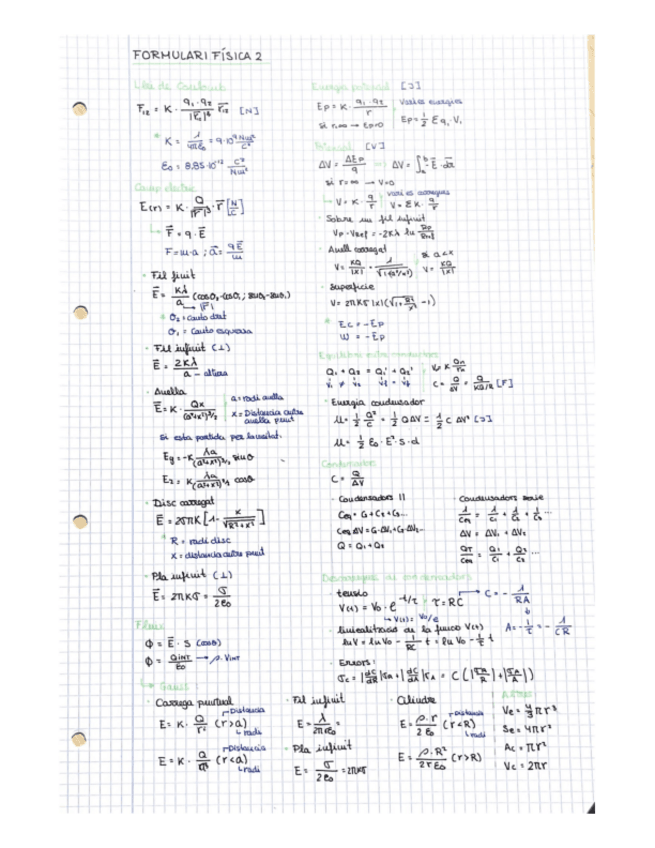 FORMULARI FÍSICA 2
Llei de Coulomb
F₁₂ = K · q₁·q₂/|r₁₂|³ r⃗₁₂ [N]
* K = 1/4πε₀ = 9·10⁹ Nm²/C²
ε₀ = 8,85·10⁻¹² C²/Nm²
Camp elèctric
E(r) = K · Q/|r|³ · r⃗ [N/C]
↳ F⃗ = q · E⃗
F = m·a ; a⃗ = qE⃗/m
· Fil finit
E⃗ = Kλ/a (cosθ₂-cosθ₁ ; sinθ₂-sinθ₁)
↳ |r⃗|
* θ₂ = canto dret
θ₁ = canto esquerra
· Fil infinit (⊥)
E⃗ = 2Kλ/a - altura
· Anella
E⃗ = K · Qx/(a²+x²)^3/2
a = radi anella
x = Distancia entre anella punt
Si esta partida per la meitat.
Ey = -K λa/(a²+x²)^3/2 sinθ
Ez = K λa/(a²+x²)^3/2 cosθ
· Disc carregat
E⃗ = 2σπK [1 - x/√R²+x²]
* R = radi disc
x = distancia entre punt
· Pla infinit (⊥)
E⃗ = 2πKσ = σ/2ε₀
Flux
Φ = E⃗ · S (cosθ)
Φ = Q INT/ε₀ → ρ·V INT
↳ Gauss:
· Carrega puntual
E = K · Q/r² (r>a)
Distancia
radi
E = K · Q/a³ (r<a)
Distancia
radi
· Fil infinit
E = λ/2πrε₀ =
· Pla infinit
E = σ/2ε₀ = 2πKσ
· Cilindre
E = ρ·r/2ε₀ (r<R)
Distancia
radi
E = ρ·R²/2rε₀ (r>R)
Energia potencial [J]
Ep = K · q₁·q₂/r
si r=∞ → Ep=0
Varies energies
Ep = 1/2 Σ qᵢ · Vᵢ
Potencial [V]
ΔV = ΔEp/q ⇒ ΔV = ∫ₐᵇ -E⃗ · dr⃗
si r=∞ → V=0
↳ V = K · q/r
varies carregues
V = ΣK · q/r
· Sobre un fil infinit
Vp - Vref = -2Kλ ln Rp/Rref
· Anell carregat
V = KQ/|x| · 1/√1+(a²/x²)
si a<x
V = KQ/|x|
· Superficie
V = 2πKσ|x|(√1+R²/x² -1)
* Ec = -Ep
W = -Ep
Equilibri entre conductors
Q₁ + Q₂ = Q₁' + Q₂'
V₁ ≠ V₂ V₁' = V₂'
Vₙ = K Qₙ/rₙ
C = Q/ΔV = Q/KQ/R [F]
· Energia condensador
U = 1/2 Q²/C = 1/2 QΔV = 1/2 C ΔV² [J]
U = 1/2 ε₀ · E² · S · d
Condensador
C = Q/ΔV
· Condensadors II
Ceq = C₁+C₂+C₃...
Ceq ΔV = C₁·ΔV₁+C₂·ΔV₂...
Q = Q₁+Q₂
Condensadors serie
1/Ceq = 1/C₁ + 1/C₂ + 1/C₃ ...
ΔV = ΔV₁ + ΔV₂
QT/Ceq = Q₁/C₁ + Q₂/C₂ ...
Descarregues de condensadors
· tensio
V(t) = V₀ · e^-t/τ ; τ = RC
→ C = - 1/RA
↳ V(τ) = V₀/e
· linealització de la funcio V(t)
A = - 1/τ = - 1/CR
ln V = ln V₀ - 1/RC t = ln V₀ - 1/τ t
· Errors:
σc = |dC/dR|σR + |dC/dA|σA = C (|σR/R| + |σA/A|)
Altres
Ve = 4/3 πr³
Se = 4πr²
Ac = πr²
Vc = 2πr